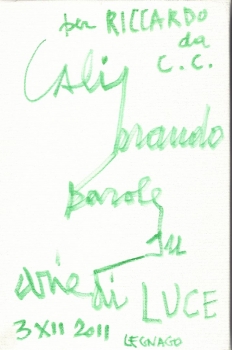 per RICCARDO
da
C. C.
Cali
brando
parole
su
di LUCE
3 XII 2011 LEGNAGO